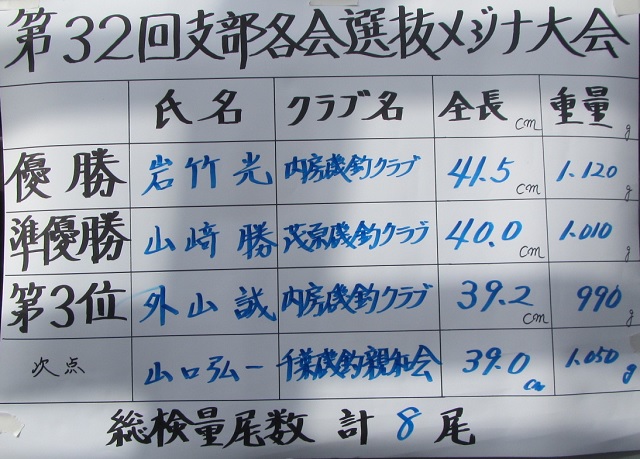 第32回支部各会選抜メジナ大会
氏名 クラブ名 全長cm 重量g
優勝 岩竹光 内房磯釣クラブ 41.5cm 1.120g
準優勝 山崎勝 茂原磯釣クラブ 40.0cm 1.010g
第3位 外山誠 内房磯釣クラブ 39.2cm 990g
次点 山口弘一 千葉磯釣親和会 39.0cm 1.050g
総検量尾数 計8尾